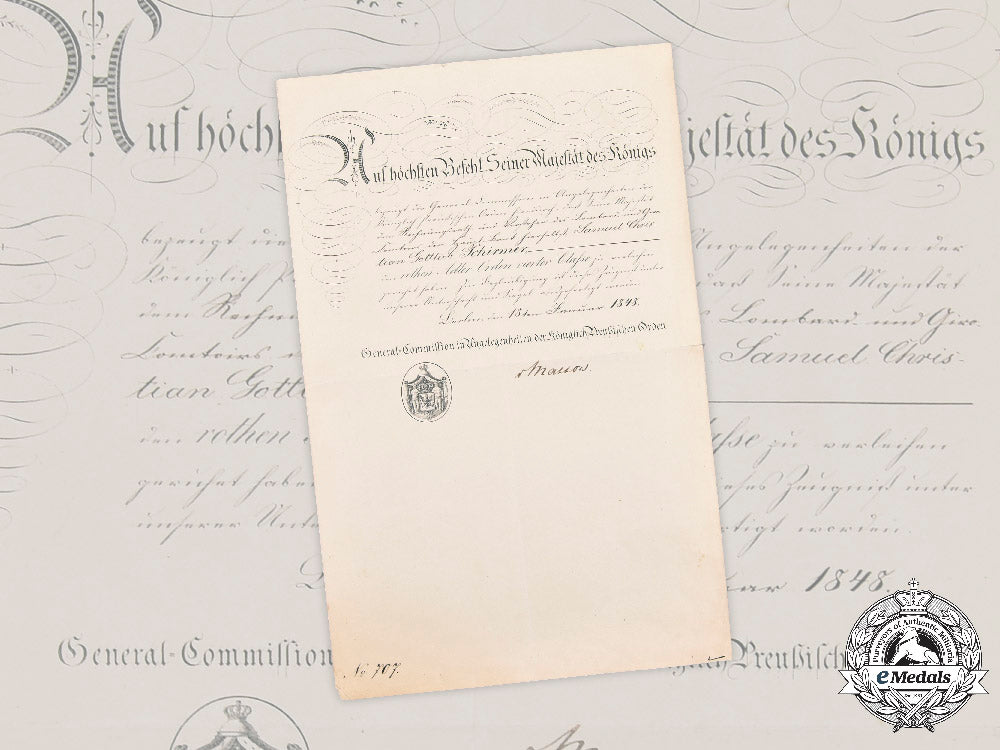 Auf höchsten Befehl Seiner Majestät des Königs
bezeugt die General-Commission in Angelegenheiten der
Königlich Preußischen Orden hierdurch, daß Seine Majestät
dem und des Lombard und Giro
Comtoirs der Haupt-Bank Samuel Chris-
tian Gottlob Schirmer
den rothen Adler Orden vierter Classe zu verleihen
geruhet haben. Zur Beglaubigung ist dieses Zeugniß unter
unserer Unterschrift und Siegel ausgefertigt worden.
Berlin, den 18ten Januar 1848.
General-Commission in Angelegenheiten der Königlich Preußischen Orden
No 707.
Auf höch jestät des Königs
bezeugt die Angelegenheiten der
Königlich P daß Seine Majestät
dem Rechn s Lombard und Giro
Comtoirs d Samuel Chris-
tian Gotto
den rothen asse zu verleihen
geruhet habe ieses Zeugniß unter
unserer Unte rtigt worden.
uar 1848.
General-Commission glich Preußisch
Purveyors of Authentic Militaria
eMedals